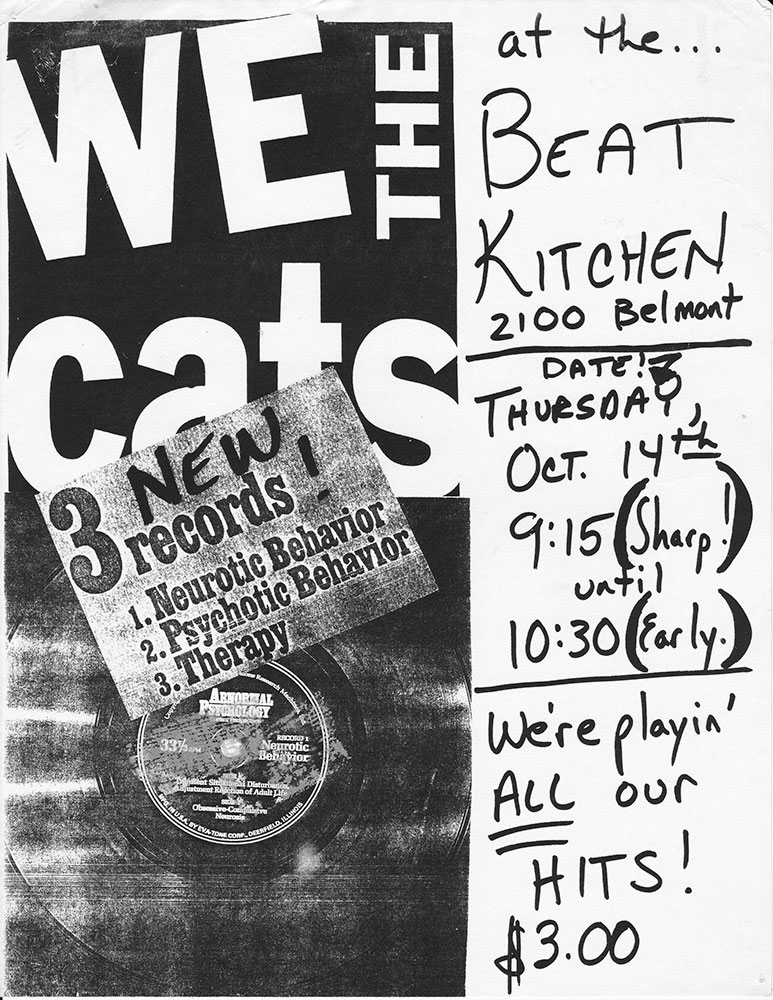 WE
THE
cats
3 NEW
records!
1. Neurotic Behavior
2. Psychotic Behavior
3. Therapy
ABNORMAL
PSYCHOLOGY
33⅓ RPM
RECORD 1
Neurotic
Behavior
Transient Situational Disturbance,
Adjustment Reaction of Adult Life
Obsessive-Compulsive
Neurosis
MADE IN U.S.A. BY EVA-TONE CORP., DEERFIELD, ILLINOIS
at the...
BEAT
KITCHEN
2100 Belmont
DATE!
THURSDAY,
OCT. 14th
9:15 (Sharp!)
until
10:30 (Early.)
We're playin'
ALL our
HITS!
$3.00